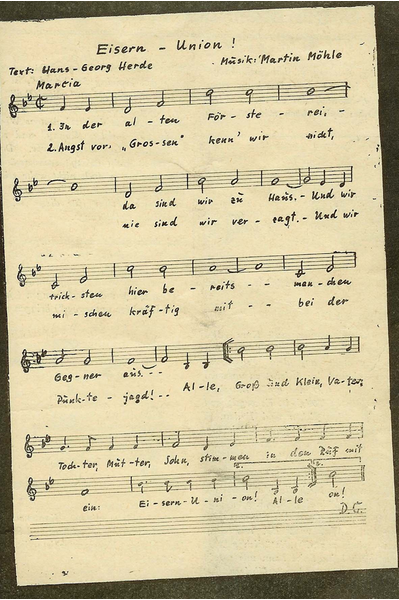 Eisern - Union!
Text: Hans-Georg Herde Musik: Martin Möhle
Marcia
1. In der al-ten För-ste-rei,-
2. Angst vor „Gros-sen" kenn' wir nicht,
da sind wir zu Haus.- Und wir
nie sind wir ver-zagt.- Und wir
trick-sten hier be-reits -- man-chen
mi-schen kräf-tig mit -- bei der
Geg-ner aus.--
Punk-te-jagd!-- Al-le, Groß und Klein, Va-ter,
Toch-ter, Mut-ter, Sohn, stim-men in den Ruf mit
ein: Ei-sern-U-ni-on! Al-le on!
D.C.